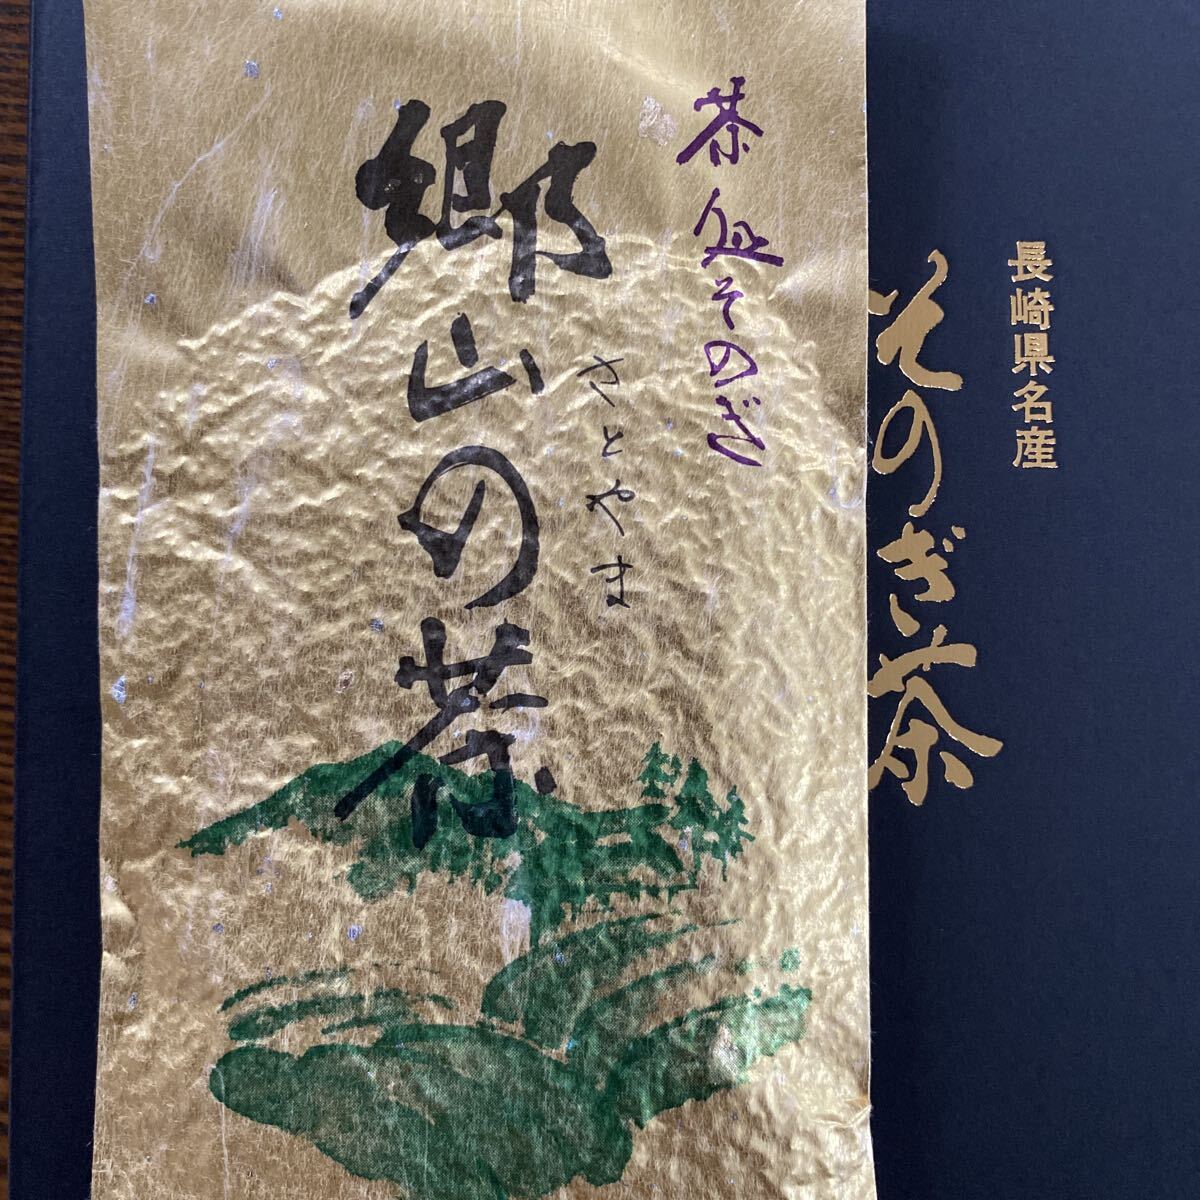 長崎県名産
そのぎ茶
茶処そのぎ
さとやま
郷山の茶